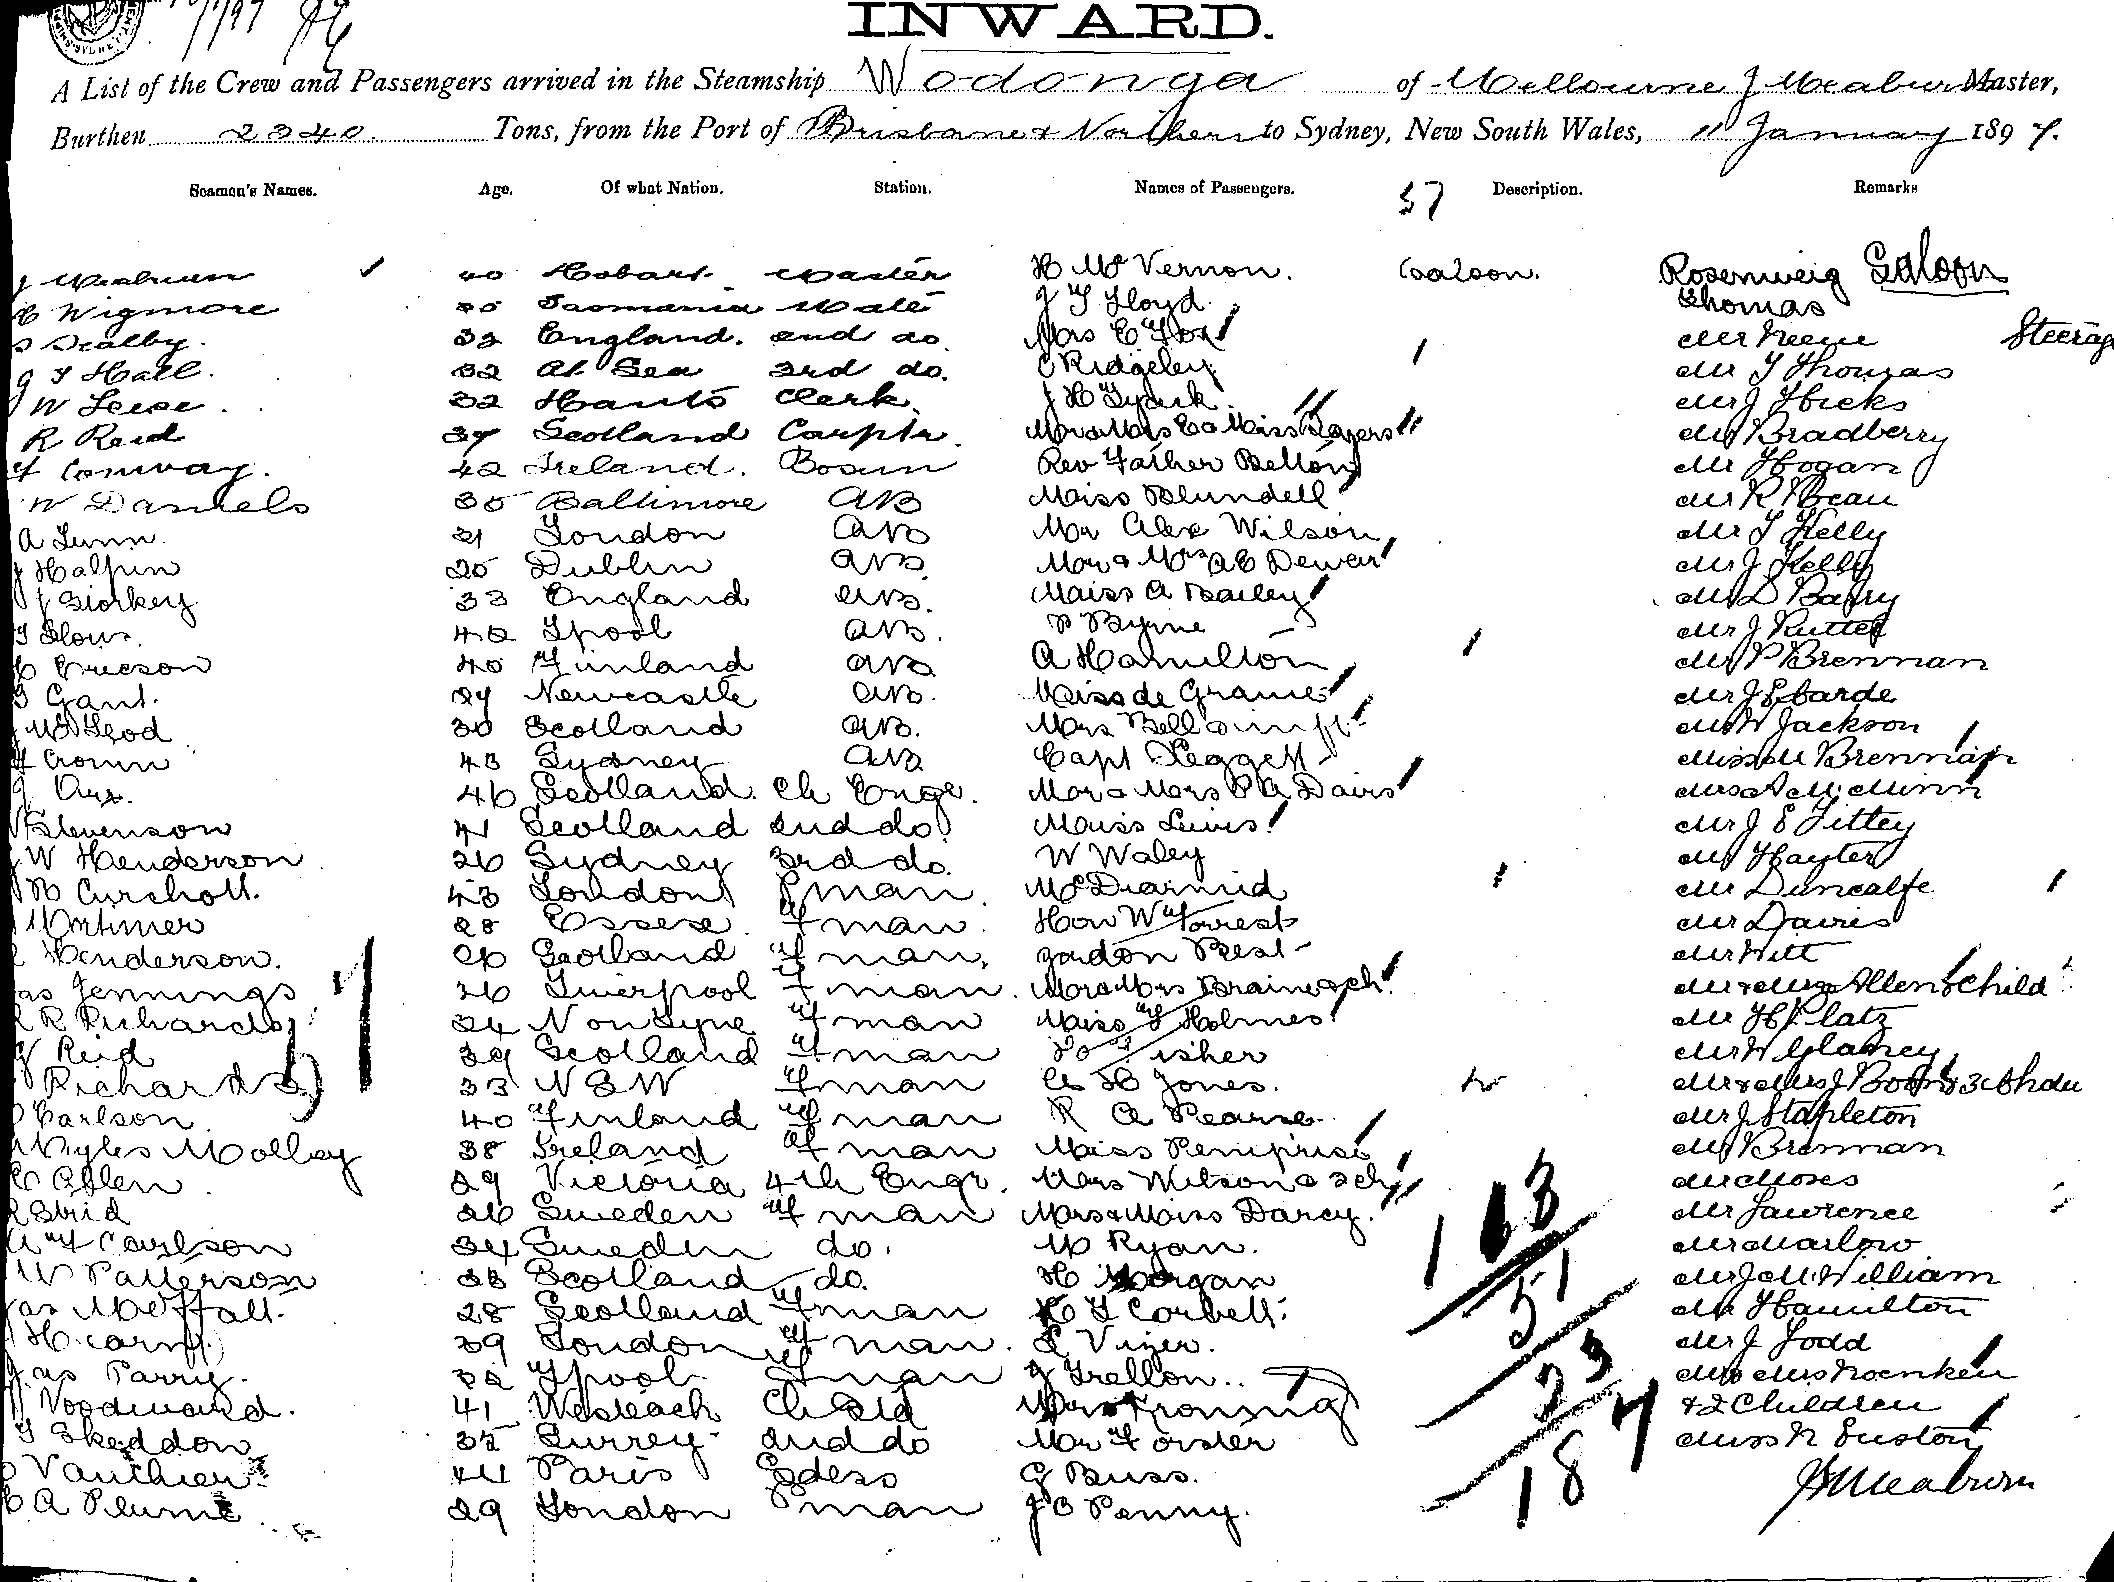 INWARD.
A List of the Crew and Passengers arrived in the Steamship Wodonga of Melbourne J Meaburn Master,
Burthen 2340 Tons, from the Port of Brisbane & Northern to Sydney, New South Wales, 11 January 1897.
Seamen's Names. Age. Of what Nation. Station. Names of Passengers. 57 Description. Remarks
J Meaburn 40 Hobart Master H Mc Vernon. Saloon. Rosenweig Saloon
Wigmore Tasmania Mate J T Lloyd. Thomas
Dealby. 32 England. 2nd do. Mrs E Fox Mr Keene Steerag
J T Hall. 32 At Sea 3rd do. C Ridgeley Mr T Thomas
J W Leese. 32 Hants Clerk. J H Mr J Hicks
R Reid 37 Scotland Carptr. Mr & Mrs & Miss Rogers Mr Bradberry
F Conway. 42 Ireland. Bosun Rev Father Mr Hogan
W Daniels 35 Baltimore AB Miss Blundell Mr R Bean
A Lunn. 21 London AB Mr Alex Wilson Mr T Kelly
J Halpin 25 Dublin AB Mr & Mrs A E Dewar Mr J Kelly
J Storkey 33 England AB. Miss A Bailey Mr D Barry
T 42 Lpool AB. P Byrne Mr J Rutter
C Ericson 40 Finland AB A Hamilton Mr P Brennan
Gant. 29 Newcastle AB. Miss de Mr J E Barde
J McLeod 30 Scotland AB. Mrs Bellcamp Mr W Jackson
Cronin 43 Sydney AB Capt Leggett Miss M Brennan
J Orr. 46 Scotland. Ch Engr. Mr & Mrs P A Davis Mrs A McMinn
Stevenson 41 Scotland 2nd do. Miss Lewis Mr J E Tittey
J W Henderson 26 Sydney 3rd do. W Waley Mr Hayter
43 London man. McDiarmid Mr Duncalfe
Mortimer 28 Essex Fman. Hon W Forrest Mr Davis
Henderson. 26 Scotland Fman. Gordon Best Mr Witt
Jas Jennings 26 Liverpool Fman. Mr & Mrs Mr & Mrs Allen & Child
R Richards 34 N on Tyne Fman Miss F Holmes Mr H Platz
J Reid 39 Scotland Fman Fisher Mr W Glancy
Richards 33 N S W Fman H Jones. Mr & Mrs J Boon & 3 Chdn
Carlson 40 Finland Fman R A Pearse. Mr J Stapleton
Myles Molloy 38 Ireland Fman Miss Penprise Mr Brennan
Allen 29 Victoria 4th Engr. Mrs Wilson & 2 ch Mr Moses
Strid 26 Sweden Fman Mrs & Miss Darcy. Mr Lawrence
A F Carlson 34 Sweden do. M Ryan. Mr Marlow
W Patterson 38 Scotland do. H Morgan Mr J McWilliam
Jas Moffatt. 28 Scotland Fman T Corbett. Mr Hamilton
H 39 London Fman. Vizer. Mr J Todd
Jas Parry. 32 Lpool Fman J Trellon. Mr & Mrs Noenken
J Woodward. 41 Wisbeach Ch Std Mrs Kroning & 2 Children
T Skeddon 35 Surrey 2nd do Mr Forster Miss N Euston
Vauthier 44 Paris G Buss. J Meaburn
A Plume 29 London Pman J C Penny.
51
163
51
23
187